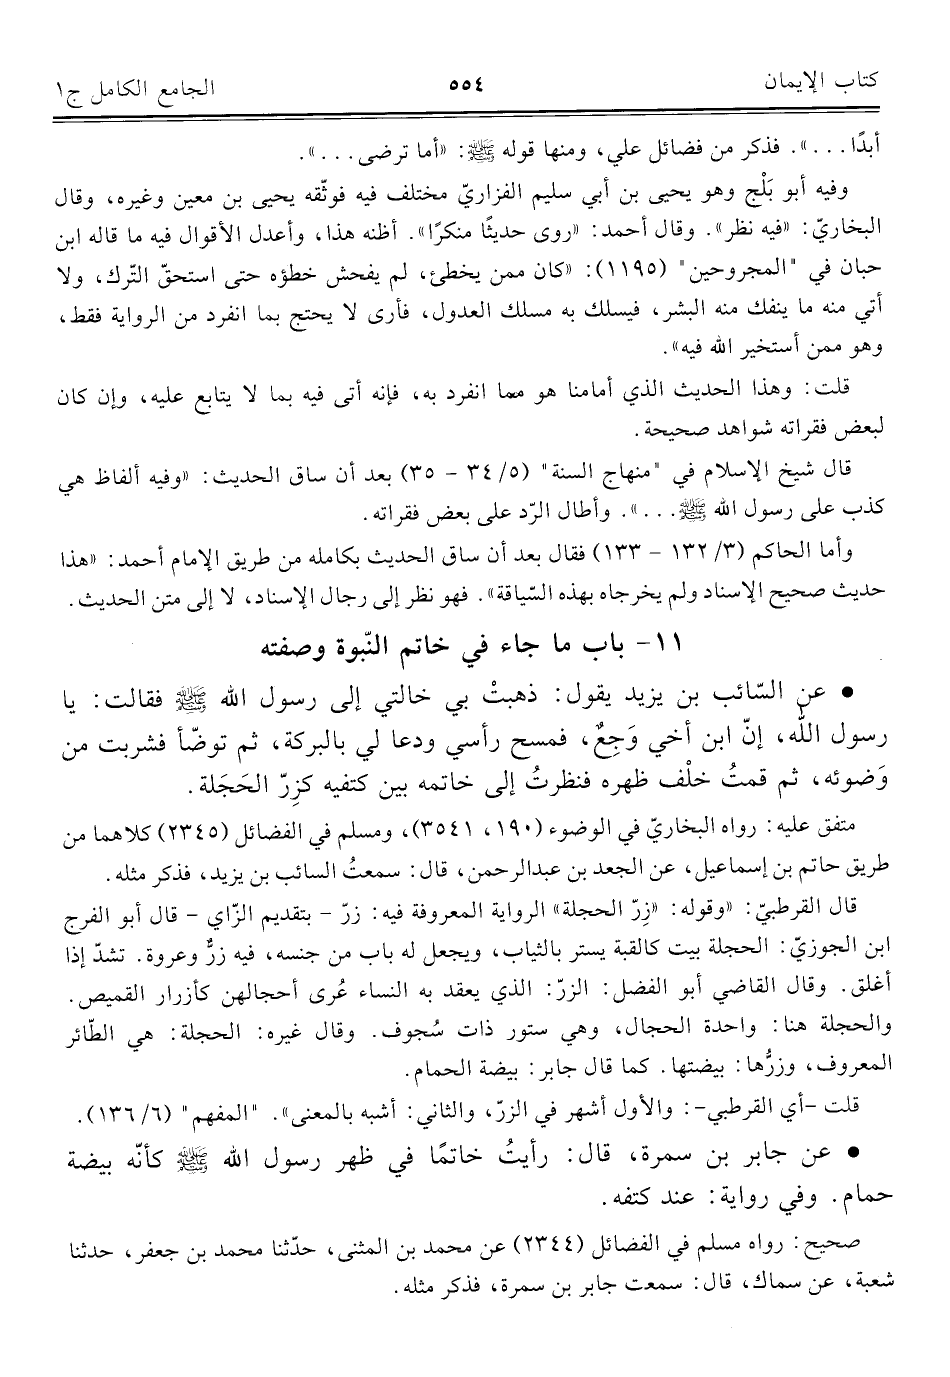 كتاب الإيمان ٥٥٤ الجامع الكامل ج١
أبدًا...». فذكر من فضائل علي، ومنها قوله ﷺ: «أما ترضى...».
وفيه أبو بَلْج وهو يحيى بن أبي سليم الفزاريّ مختلف فيه فوثّقه يحيى بن معين وغيره، وقال
البخاريّ: «فيه نظر». وقال أحمد: «روى حديثًا منكرًا». أظنه هذا، وأعدل الأقوال فيه ما قاله ابن
حبان في "المجروحين" (١١٩٥): «كان ممن يخطئ، لم يفحش خطؤه حتى استحقّ التّرك، ولا
أتي منه ما ينفك منه البشر، فيسلك به مسلك العدول، فأرى لا يحتج بما انفرد من الرواية فقط،
وهو ممن أستخير الله فيه».
قلت: وهذا الحديث الذي أمامنا هو مما انفرد به، فإنه أتى فيه بما لا يتابع عليه، وإن كان
لبعض فقراته شواهد صحيحة.
قال شيخ الإسلام في "منهاج السنة" (٥/ ٣٤ - ٣٥) بعد أن ساق الحديث: «وفيه ألفاظ هي
كذب على رسول الله ﷺ...». وأطال الرّد على بعض فقراته.
وأما الحاكم (٣/ ١٣٢ - ١٣٣) فقال بعد أن ساق الحديث بكامله من طريق الإمام أحمد: «هذا
حديث صحيح الإسناد ولم يخرجاه بهذه السّياقة». فهو نظر إلى رجال الإسناد، لا إلى متن الحديث.
١١- باب ما جاء في خاتم النّبوة وصفته
• عن السّائب بن يزيد يقول: ذهبتْ بي خالتي إلى رسول الله ﷺ فقالت: يا
رسول الله، إنّ ابن أخي وَجِعٌ، فمسح رأسي ودعا لي بالبركة، ثم توضّأ فشربت من
وَضوئه، ثم قمتُ خلْف ظهره فنظرتُ إلى خاتمه بين كتفيه كزِرّ الحَجَلة.
متفق عليه: رواه البخاريّ في الوضوء (١٩٠، ٣٥٤١)، ومسلم في الفضائل (٢٣٤٥) كلاهما من
طريق حاتم بن إسماعيل، عن الجعد بن عبدالرحمن، قال: سمعتُ السائب بن يزيد، فذكر مثله.
قال القرطبيّ: «وقوله: «زِرّ الحجلة» الرواية المعروفة فيه: زرّ - بتقديم الزّاي - قال أبو الفرج
ابن الجوزيّ: الحجلة بيت كالقبة يستر بالثياب، ويجعل له باب من جنسه، فيه زرٌّ وعروة. تشدّ إذا
أغلق. وقال القاضي أبو الفضل: الزرّ: الذي يعقد به النساء عُرى أحجالهن كأزرار القميص.
والحجلة هنا: واحدة الحجال، وهي ستور ذات سُجوف. وقال غيره: الحجلة: هي الطّائر
المعروف، وزرُّها: بيضتها. كما قال جابر: بيضة الحمام.
قلت -أي القرطبي-: والأول أشهر في الزرّ، والثاني: أشبه بالمعنى». "المفهم" (٦/ ١٣٦).
• عن جابر بن سمرة، قال: رأيتُ خاتمًا في ظهر رسول الله ﷺ كأنّه بيضة
حمام. وفي رواية: عند كتفه.
صحيح: رواه مسلم في الفضائل (٢٣٤٤) عن محمد بن المثنى، حدّثنا محمد بن جعفر، حدثنا
شعبة، عن سماك، قال: سمعت جابر بن سمرة، فذكر مثله.